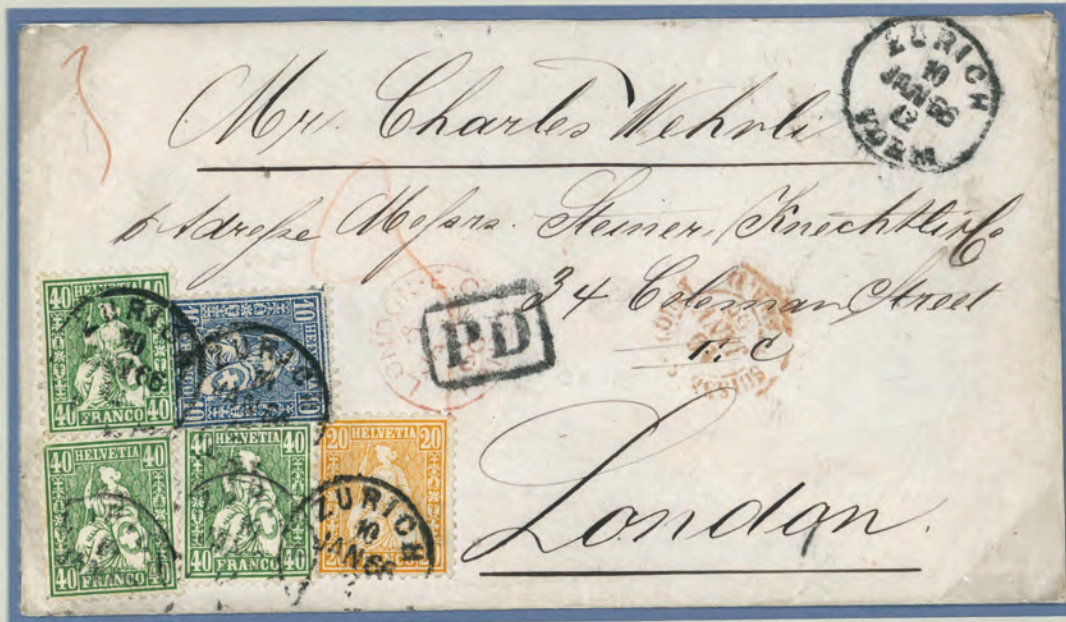 ZÜRICH
10
JAN 66
12
VORM
Mr. Charles Wehrli
Adreſse Meſsrs. Steiner, Knechtli & Co
34 Coleman Street
London.
PD
LONDON
40 HELVETIA 40
40 FRANCO 40
10 HELVETIA 10
10 FRANCO 10
40 HELVETIA 40
40 FRANCO 40
40 HELVETIA 40
40 FRANCO 40
20 HELVETIA 20
20
ZURICH
10
JAN 66
ZURICH
10
JAN 66